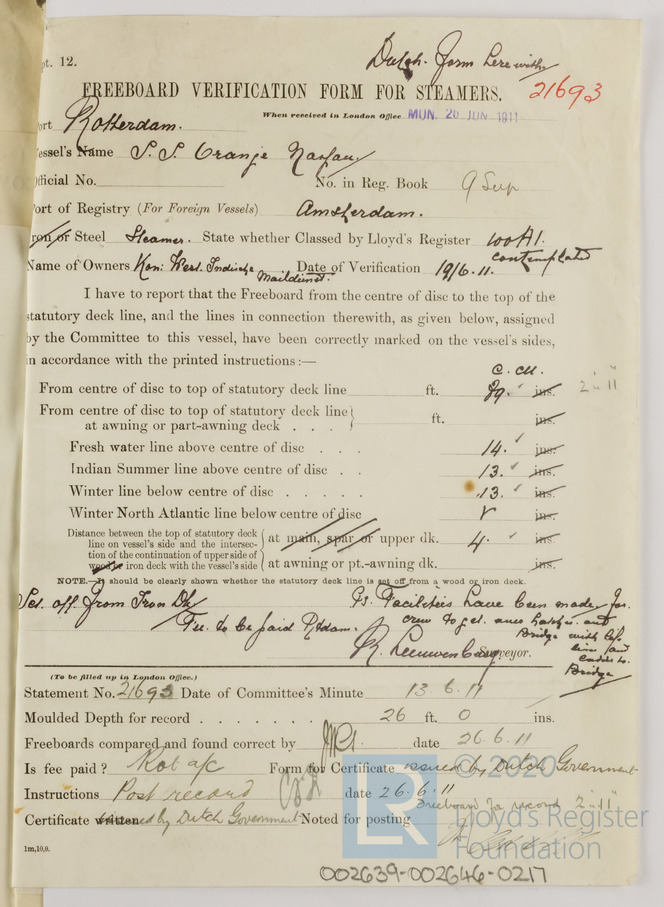 pt. 12.
Dutch form herewith
FREEBOARD VERIFICATION FORM FOR STEAMERS.
21693
When received in London Office MON. 26 JUN 1911
ort Rotterdam.
essel's Name S.S. Oranje Nassau
fficial No. No. in Reg. Book 9 Sup
ort of Registry (For Foreign Vessels) Amsterdam.
ron or Steel Steamer. State whether Classed by Lloyd's Register 100A1.
contemplated
Name of Owners Kon: West. Indische Maildienst. Date of Verification 19/6.11.
I have to report that the Freeboard from the centre of disc to the top of the
statutory deck line, and the lines in connection therewith, as given below, assigned
by the Committee to this vessel, have been correctly marked on the vessel's sides,
in accordance with the printed instructions:—
c.M.
From centre of disc to top of statutory deck line ft. 89. ins. 2-11"
From centre of disc to top of statutory deck line
at awning or part-awning deck . . . ft. ins.
Fresh water line above centre of disc . . . 14. ins.
Indian Summer line above centre of disc . . 13. ins.
Winter line below centre of disc . . . . . 13. ins.
Winter North Atlantic line below centre of disc ins.
Distance between the top of statutory deck
line on vessel's side and the intersec-
tion of the continuation of upper side of
wood or iron deck with the vessel's side
at main, spar or upper dk. 4. ins.
at awning or pt.-awning dk. ins.
NOTE.—It should be clearly shown whether the statutory deck line is set off from a wood or iron deck.
Set off from Iron Dk
Fee to be paid R'dam.
Facilities have been made for
crew to get over hatches and
Bridge with life
line and
ladder to
Bridge
R. Leeuwenburg Surveyor.
(To be filled up in London Office.)
Statement No. 21693 Date of Committee's Minute 13.6.11
Moulded Depth for record . . . . . . . 26 ft. 0 ins.
Freeboards compared and found correct by date 26.6.11
Is fee paid? Rot a/c Form for Certificate issued by Dutch Government
Instructions Post record date 26.6.11
Freeboard for record 2-11"
Certificate written issued by Dutch Government Noted for posting
1m,10,9.
© 2020
LR
Lloyd's Register
Foundation
002639-002646-0217